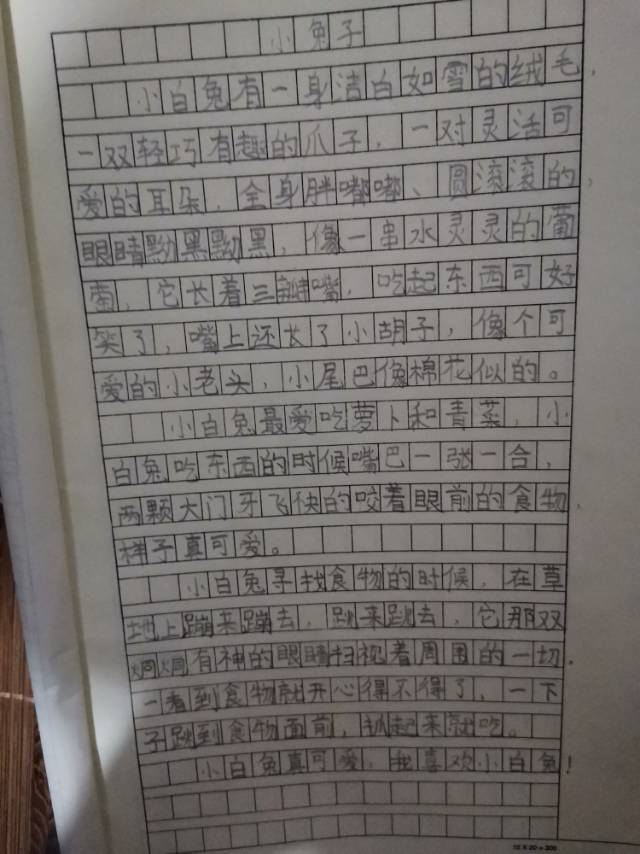 小兔子
小白兔有一身洁白如雪的绒毛，
一双轻巧有趣的爪子，一对灵活可
爱的耳朵，全身胖嘟嘟、圆滚滚的，
眼睛黝黑黝黑，像一串水灵灵的葡
萄，它长着三瓣嘴，吃起东西可好
笑了，嘴上还长了小胡子，像个可
爱的小老头，小尾巴像棉花似的。
小白兔最爱吃萝卜和青菜，小
白兔吃东西的时候嘴巴一张一合，
两颗大门牙飞快的咬着眼前的食物，
样子真可爱。
小白兔寻找食物的时候，在草
地上蹦来蹦去，跳来跳去，它那双
炯炯有神的眼睛扫视着周围的一切，
一看到食物就开心得不得了，一下
子跳到食物面前，抓起来就吃。
小白兔真可爱，我喜欢小白兔！
15×20=300